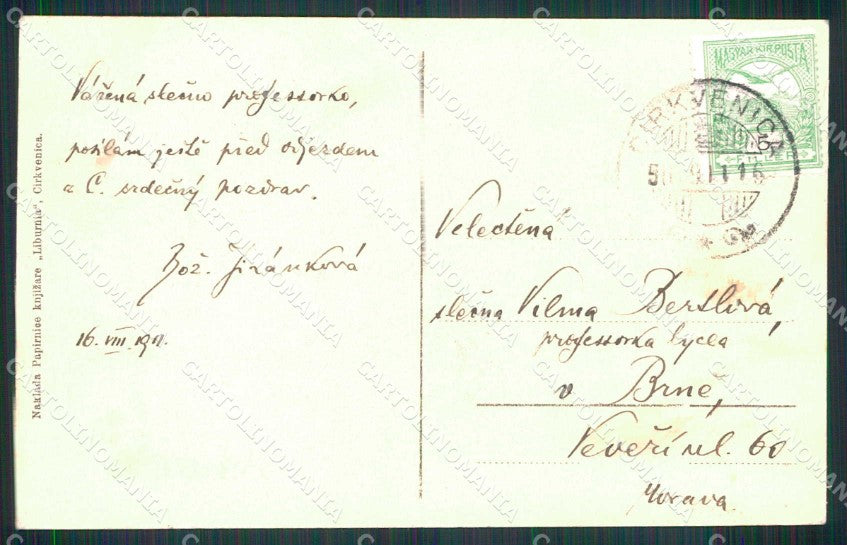 Vážená slečno professorko,
posílám ještě před odjezdem
z C. srdečný pozdrav.
Bož. Jiránková
16. VIII. 1911.
Nakláda Papirnice knjižare „Liburnia", Cirkvenica.
MAGYAR KIR. POSTA
CIRKVENICA
Velectěná
slečna Vilma Bertlová,
professorka lycea
v Brně,
Veveří ul. 60
Morava
CARTOLINOMANIA